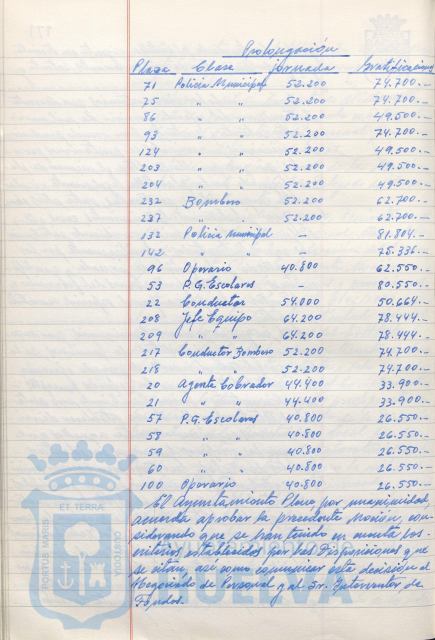 Prolongación
Plaza Clase jornada Gratificaciones
71 Policía Municipal 52.200 74.700.-
75 " " 52.200 74.700.-
86 " " 52.200 49.500.-
93 " " 52.200 74.700.-
124 " " 52.200 49.500.-
203 " " 52.200 49.500.-
204 " " 52.200 49.500.-
232 Bombero 52.200 62.700.-
237 " " 52.200 62.700.-
132 Policía Municipal - 81.804.-
142 " " - 75.336.-
96 Operario 40.800 62.550.-
53 P.G. Escolares - 80.550.-
22 Conductor 54.000 50.664.-
208 Jefe Equipo 64.200 78.444.-
209 " " 64.200 78.444.-
217 Conductor Bombero 52.200 74.700.-
218 " " 52.200 74.700.-
20 Agente Cobrador 44.400 33.900.-
21 " " 44.400 33.900.-
57 P.G. Escolares 40.800 26.550.-
58 " " 40.800 26.550.-
59 " " 40.800 26.550.-
60 " " 40.800 26.550.-
100 Operario 40.800 26.550.-
El Ayuntamiento Pleno por unanimidad,
acuerda aprobar la precedente Moción, con-
siderando que se han tenido en cuenta los
criterios establecidos por las Disposiciones que
se citan, así como comunicar esta decisión al
Negociado de Personal y al Sr. Interventor de
Fondos.
ET TERRAE
PORTUS MARIS
CUSTODIA
HUELVA